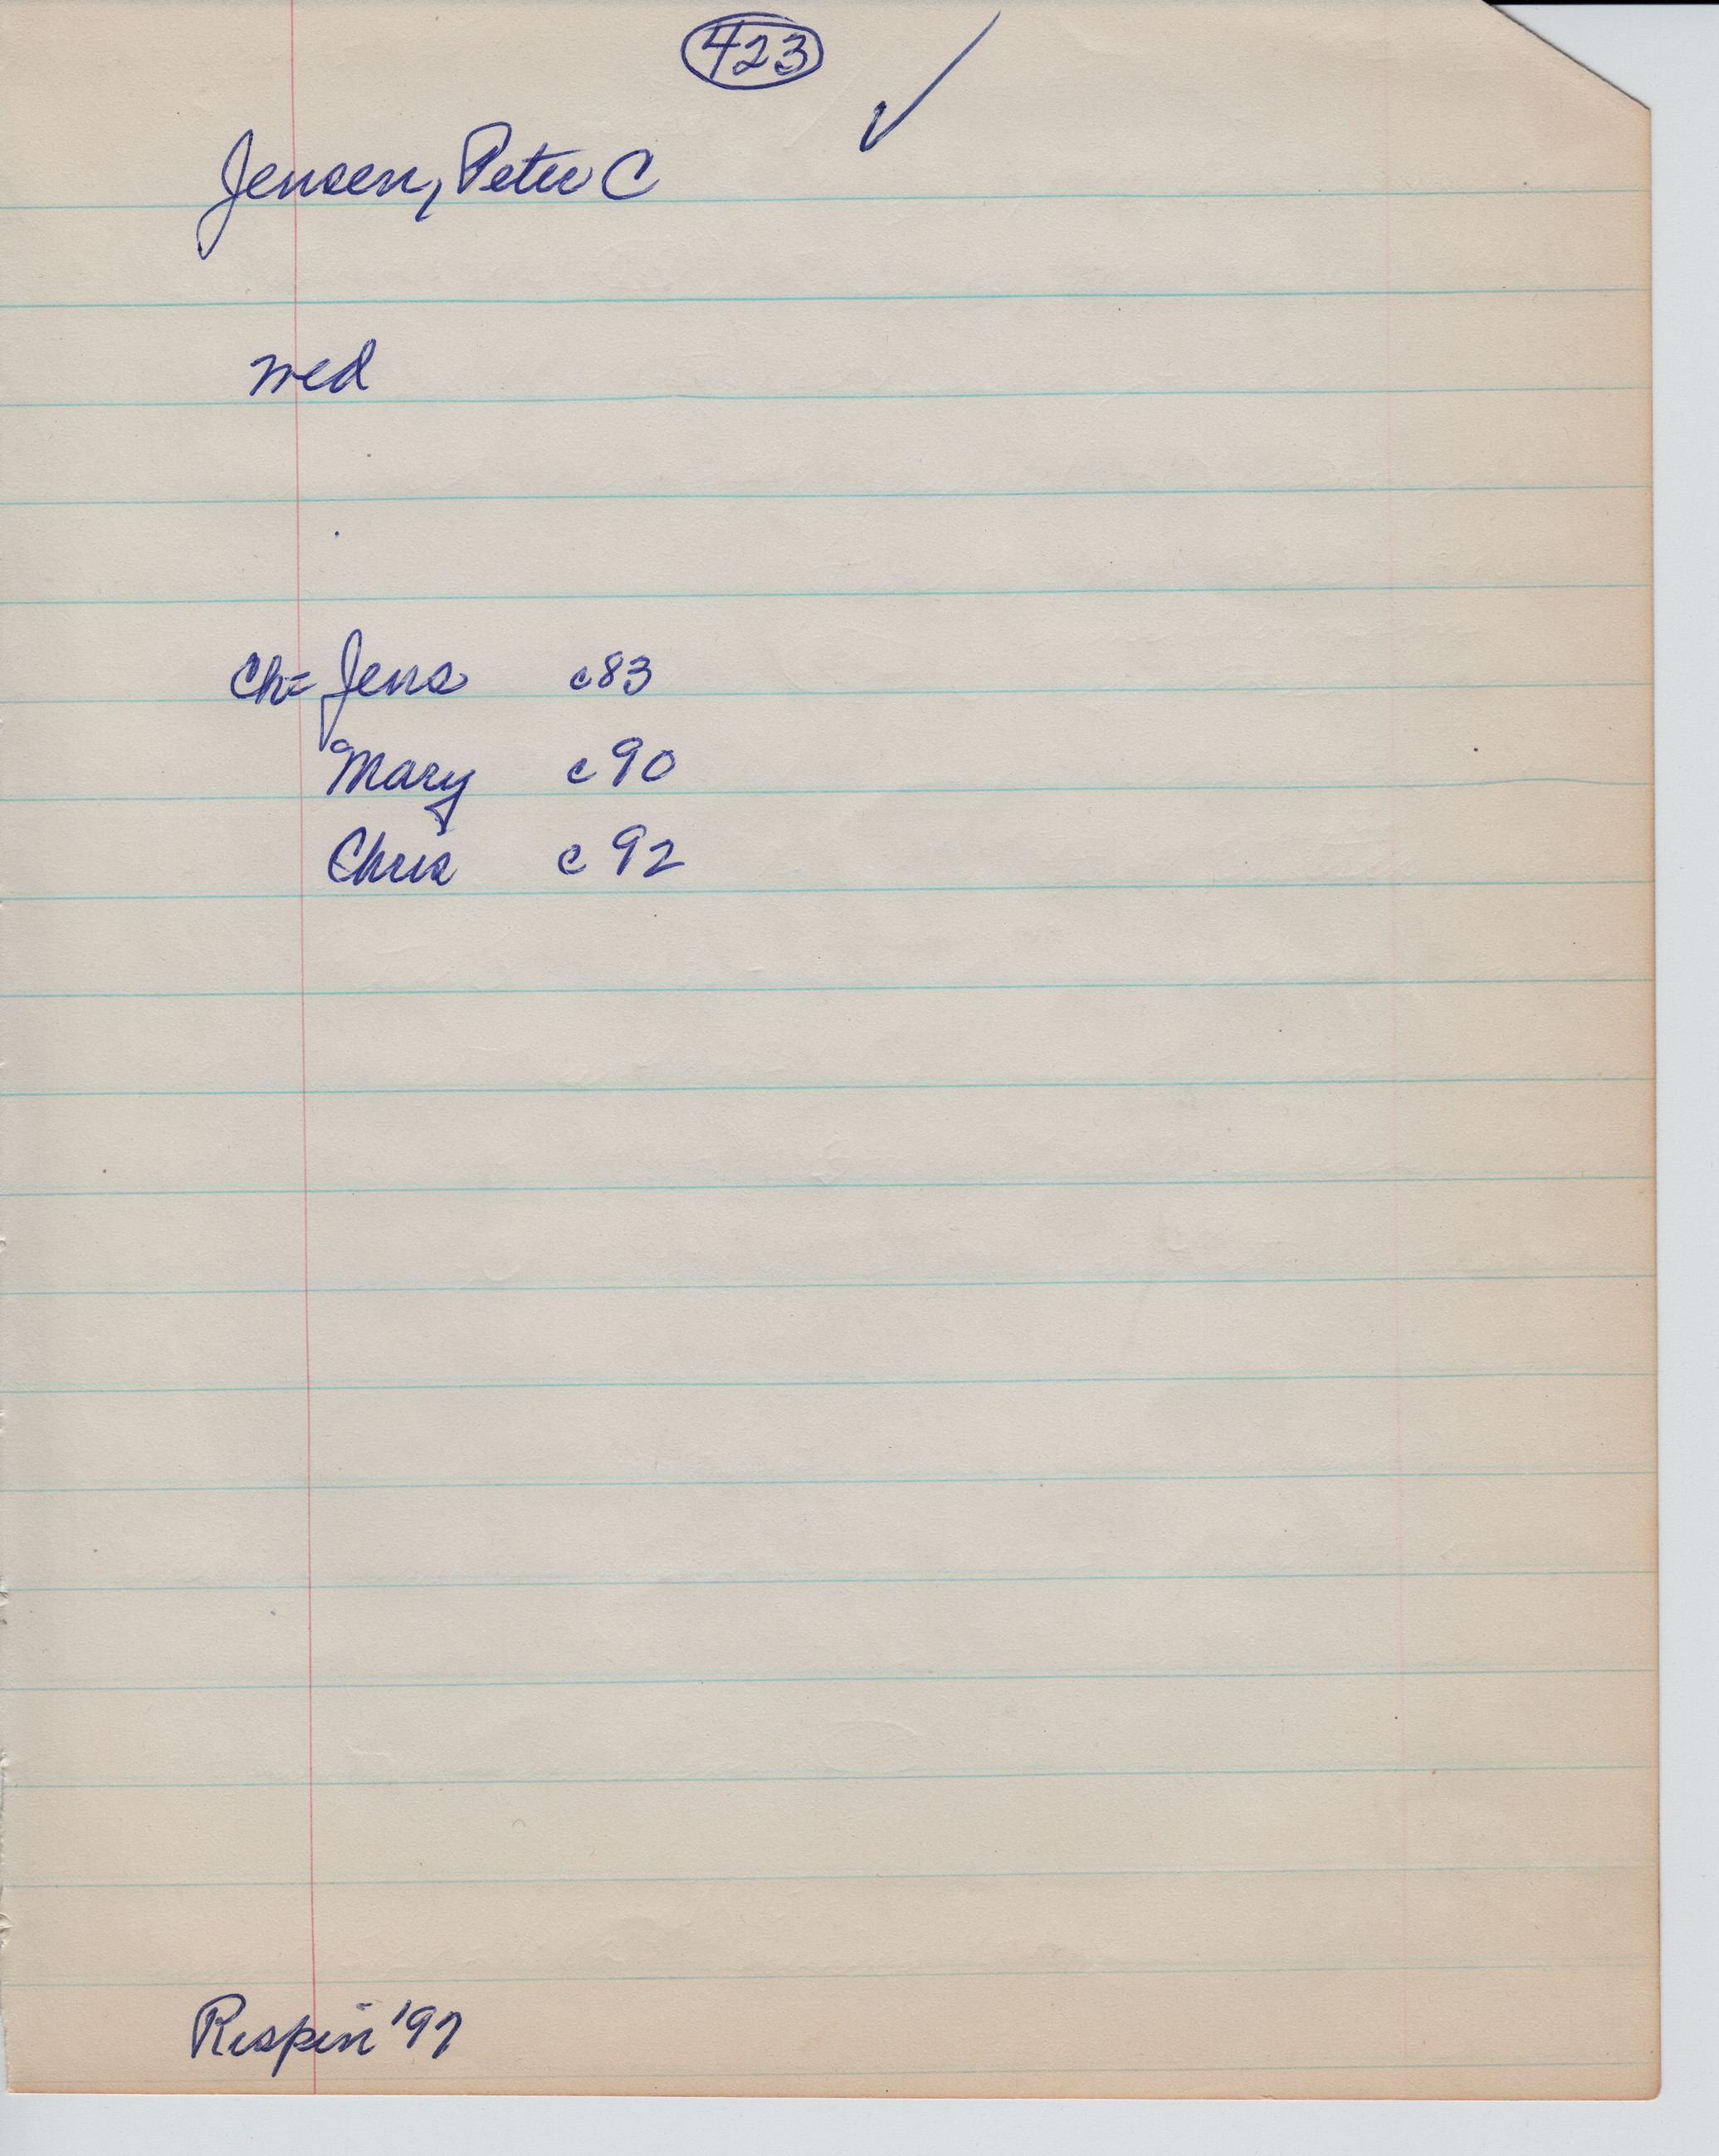 423 ✓
Jensen, Peter C
med
Ch= Jens c83
Mary c90
Chris c92
Rispin '97